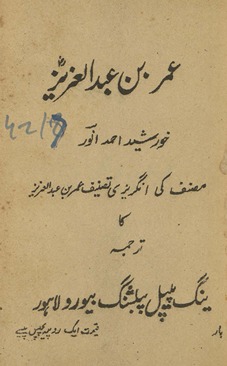 عمر بن عبدالعزیزؒ
4218
خورشید احمد انور
مصنف کی انگریزی تصنیف عمر بن عبدالعزیز
کا
ترجمہ
ینگ پیپل پبلشنگ بیورو لاہور
بار
قیمت ایک روپیہ پچیس پیسے